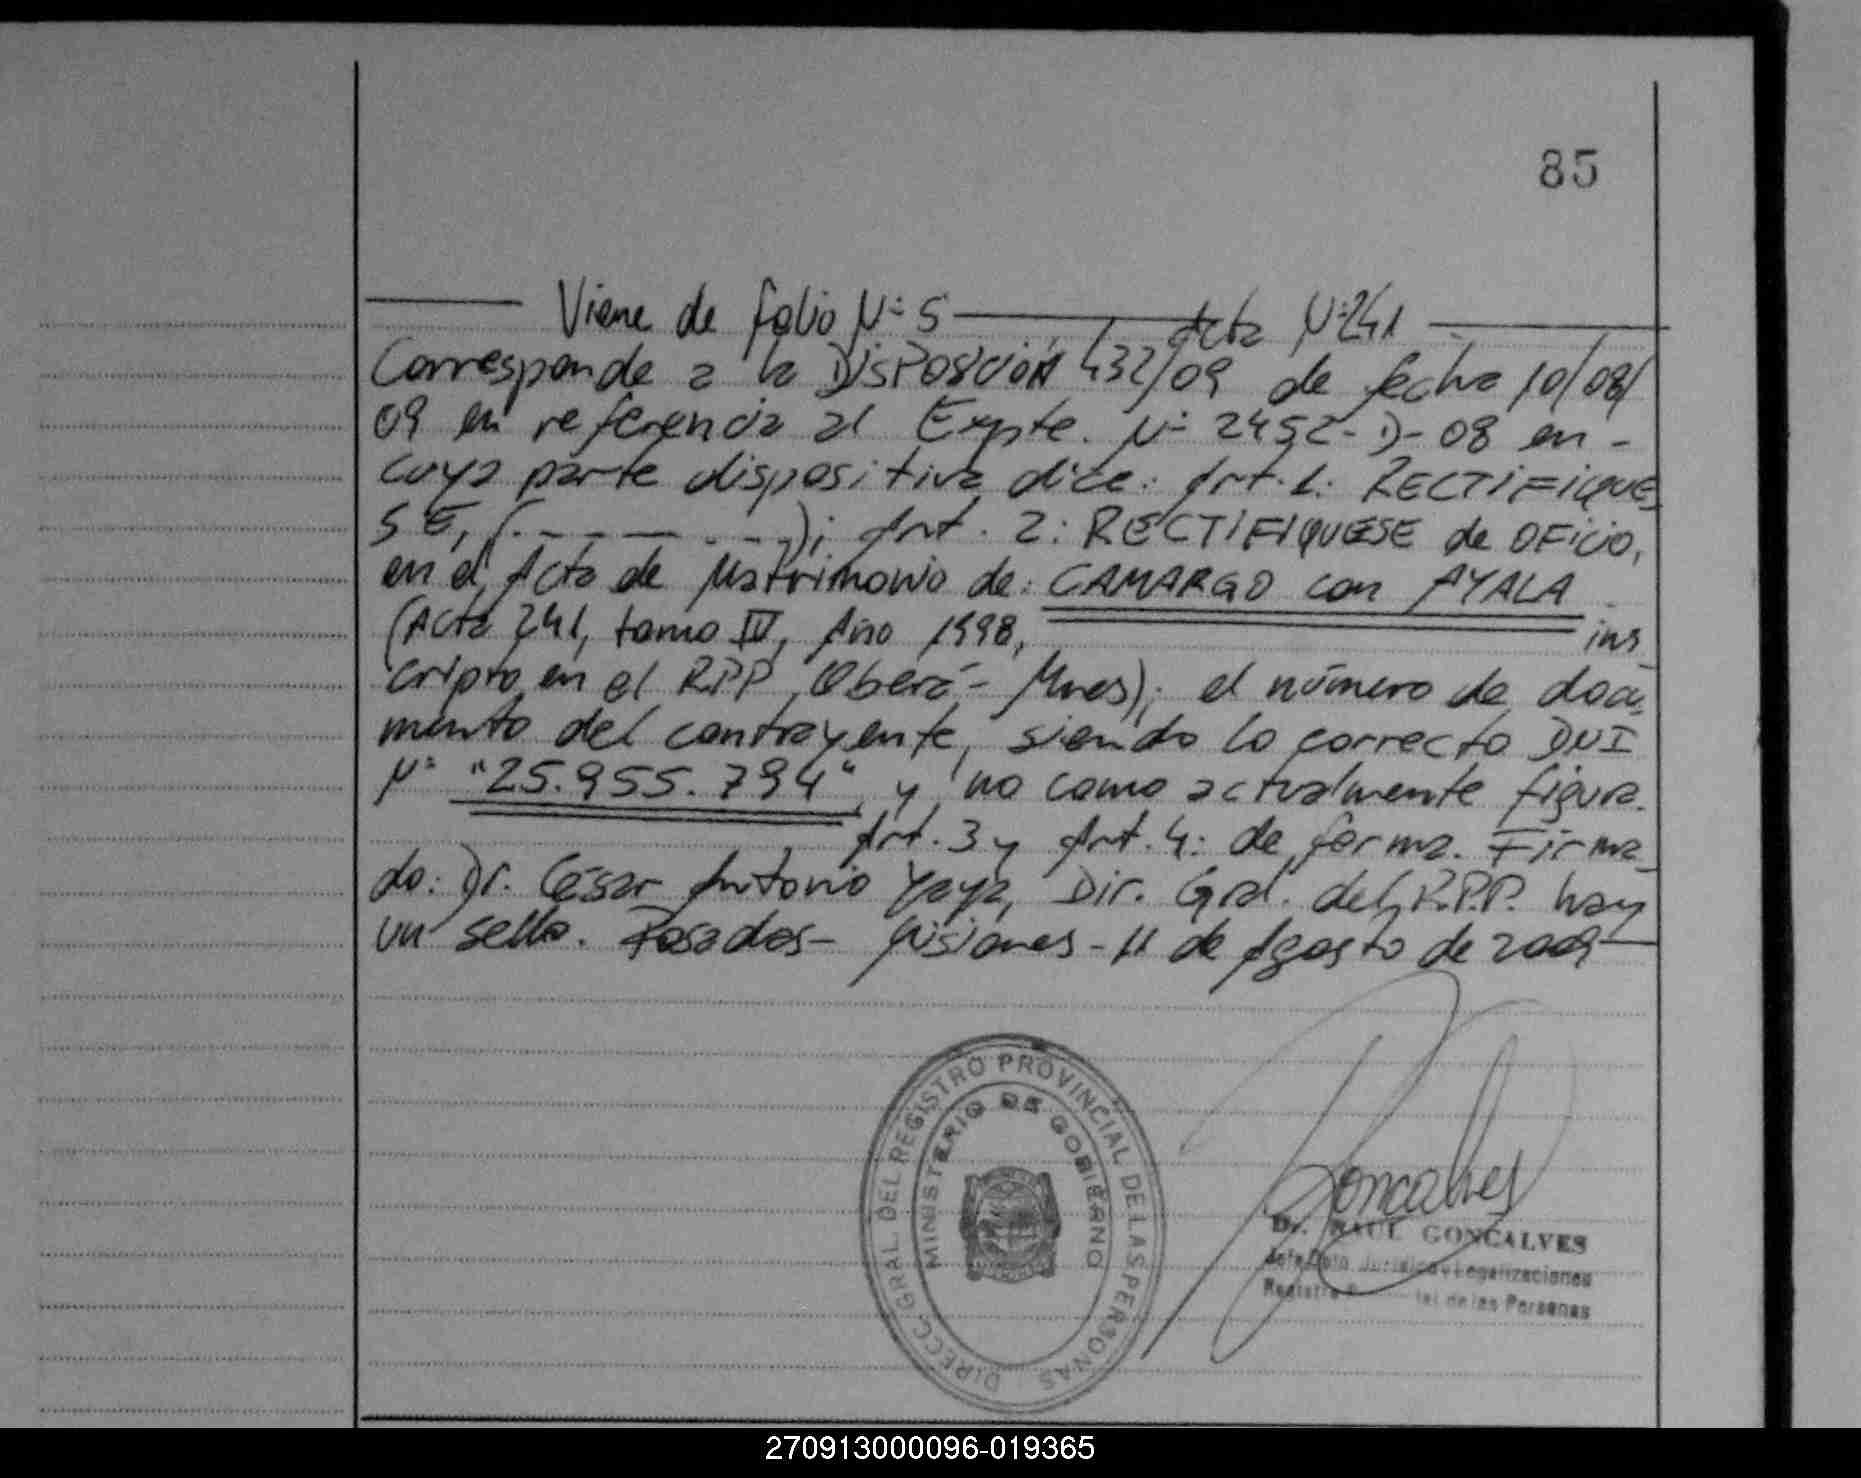 85
Viene de folio Nº 5 acta Nº 241
Corresponde a la DISPOSICIÓN 432/09 de fecha 10/08/
09 en referencia al Expte. Nº 2452-D-08 en -
cuya parte dispositiva dice: Art. 1: RECTIFIQUE
SE, (. - - - - . . - -); Art. 2: RECTIFIQUESE de OFICIO,
en el Acta de Matrimonio de: CAMARGO con AYALA
(Acta 241, tomo IV, Año 1998, ins
cripto en el RPP, Oberá - Mnes); el número de docu
mento del contrayente, siendo lo correcto DNI
Nº "25.955.794" y no como actualmente figura.
Art. 3 y Art. 4: de forma. Firma
do: Dr. César Antonio Yaya, Dir. Gral. del R.P.P. hay
un sello. Posadas - Misiones - 11 de Agosto de 2009
DIRECC. GRAL. DEL REGISTRO PROVINCIAL DE LAS PERSONAS
MINISTERIO DE GOBIERNO
Goncalves
Dr. RAUL GONCALVES
Jefe Dpto. Jurídico y Legalizaciones
Registro de las Personas
270913000096-019365